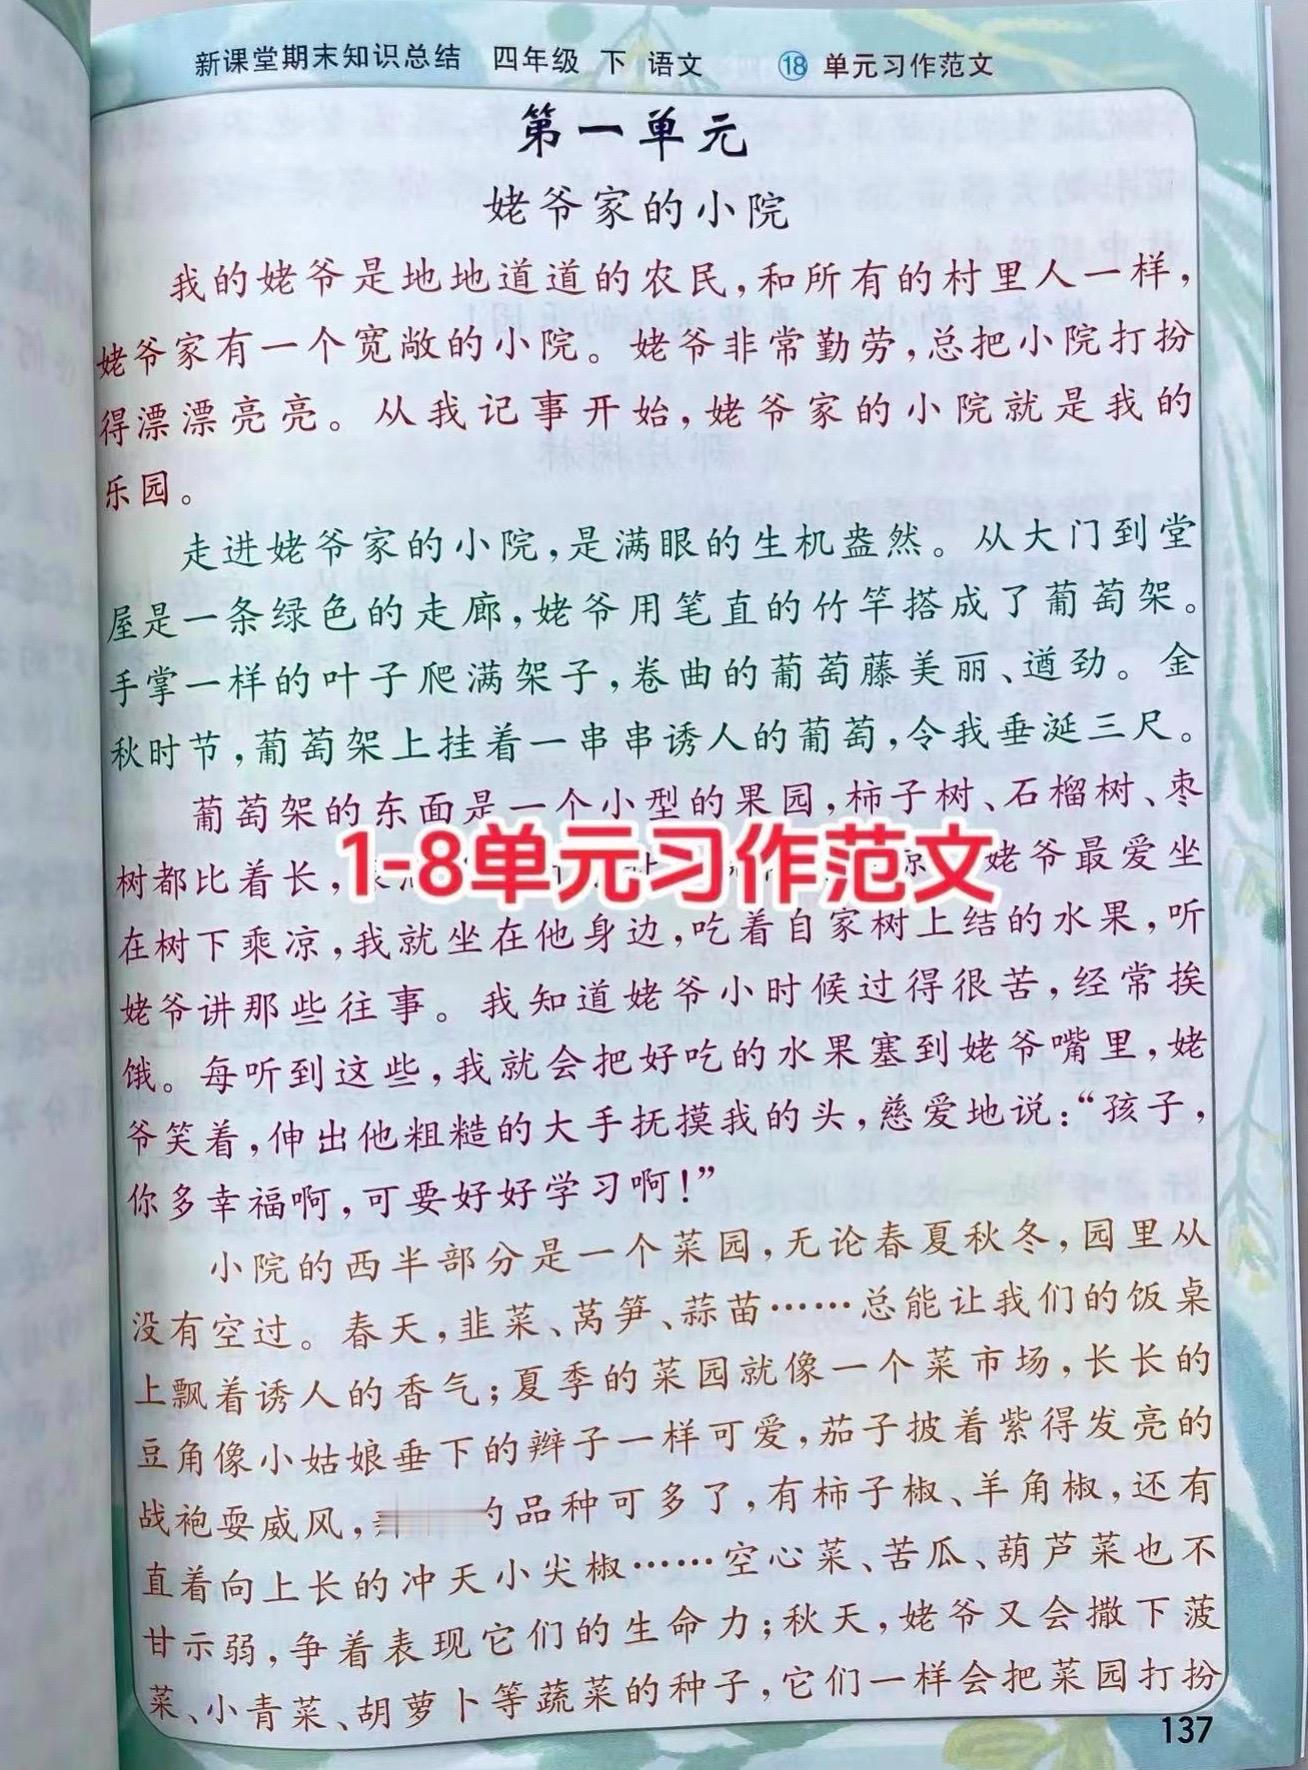 新课堂期末知识总结 四年级 下 语文 ⑱ 单元习作范文
第一单元
姥爷家的小院
我的姥爷是地地道道的农民，和所有的村里人一样，
姥爷家有一个宽敞的小院。姥爷非常勤劳，总把小院打扮
得漂漂亮亮。从我记事开始，姥爷家的小院就是我的
乐园。
走进姥爷家的小院，是满眼的生机盎然。从大门到堂
屋是一条绿色的走廊，姥爷用笔直的竹竿搭成了葡萄架。
手掌一样的叶子爬满架子，卷曲的葡萄藤美丽、遒劲。金
秋时节，葡萄架上挂着一串串诱人的葡萄，令我垂涎三尺。
葡萄架的东面是一个小型的果园，柿子树、石榴树、枣
树都比着长，
1-8单元习作范文
姥爷最爱坐
在树下乘凉，我就坐在他身边，吃着自家树上结的水果，听
姥爷讲那些往事。我知道姥爷小时候过得很苦，经常挨
饿。每听到这些，我就会把好吃的水果塞到姥爷嘴里，姥
爷笑着，伸出他粗糙的大手抚摸我的头，慈爱地说：“孩子，
你多幸福啊，可要好好学习啊！”
小院的西半部分是一个菜园，无论春夏秋冬，园里从
没有空过。春天，韭菜、莴笋、蒜苗……总能让我们的饭桌
上飘着诱人的香气；夏季的菜园就像一个菜市场，长长的
豆角像小姑娘垂下的辫子一样可爱，茄子披着紫得发亮的
战袍耍威风，的品种可多了，有柿子椒、羊角椒，还有
直着向上长的冲天小尖椒……空心菜、苦瓜、葫芦菜也不
甘示弱，争着表现它们的生命力；秋天，姥爷又会撒下菠
菜、小青菜、胡萝卜等蔬菜的种子，它们一样会把菜园打扮
137